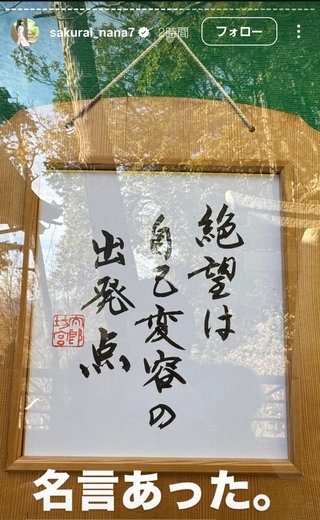 sakurai_nana7 2時間 フォロー
絶望は
自己変容の
出発点
名言あった。